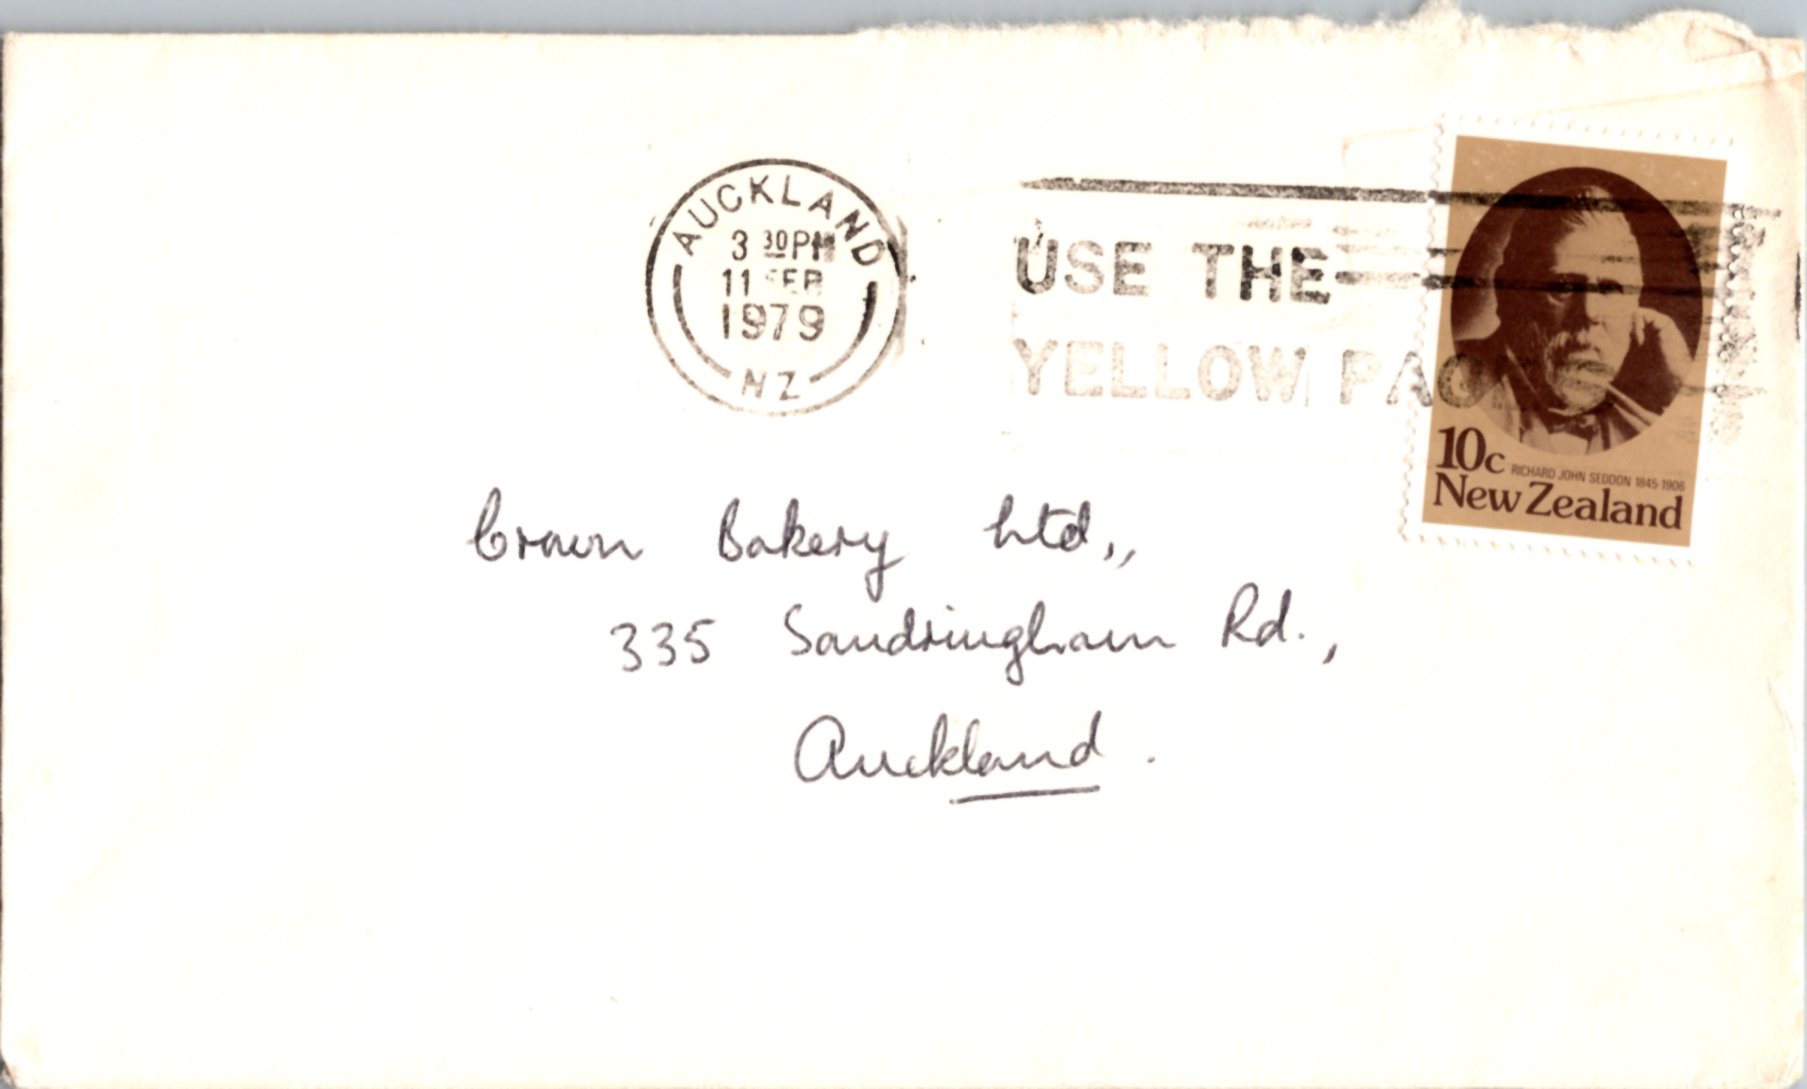 AUCKLAND
3 30 PM
11 FEB
1979
NZ
USE THE
YELLOW PAG
10c RICHARD JOHN SEDDON 1845-1906
New Zealand
Crown Bakery Ltd.,
335 Sandringham Rd.,
Auckland.